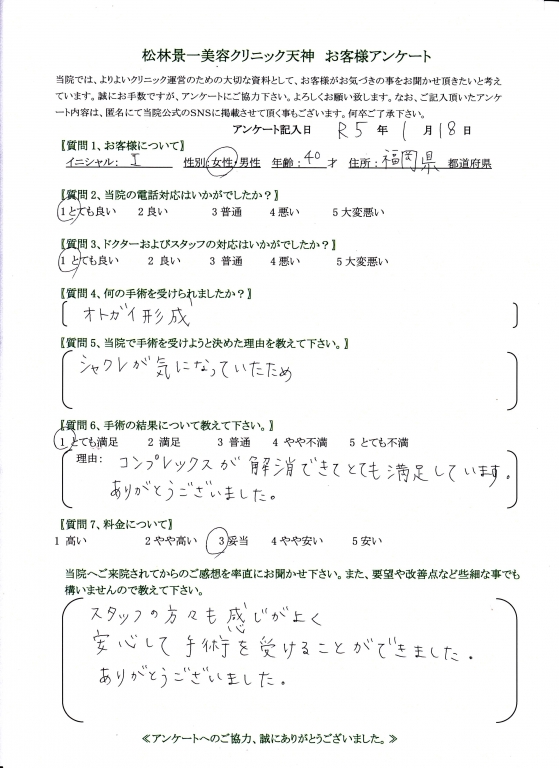 松林景一美容クリニック天神　お客様アンケート
当院では、よりよいクリニック運営のための大切な資料として、お客様がお気づきの事をお聞かせ頂きたいと考え
ています。誠にお手数ですが、アンケートにご協力下さい。よろしくお願い致します。なお、ご記入頂いたアンケ
ート内容は、匿名にて当院公式のSNSに掲載させて頂く事もございます。何卒ご了承下さい。
アンケート記入日　R5 年 1 月 18 日
〖質問 1、お客様について〗
イニシャル： I　性別：女性・男性　年齢：40 才　住所：福岡県 都道府県
〖質問 2、当院の電話対応はいかがでしたか？〗
1 とても良い　2 良い　3 普通　4 悪い　5 大変悪い
〖質問 3、ドクターおよびスタッフの対応はいかがでしたか？〗
1 とても良い　2 良い　3 普通　4 悪い　5 大変悪い
〖質問 4、何の手術を受けられましたか？〗
オトガイ形成
〖質問 5、当院で手術を受けようと決めた理由を教えて下さい。〗
シャクレが気になっていたため
〖質問 6、手術の結果について教えて下さい。〗
1 とても満足　2 満足　3 普通　4 やや不満　5 とても不満
理由： コンプレックスが解消できてとても満足しています。
ありがとうございました。
〖質問 7、料金について〗
1 高い　2 やや高い　3 妥当　4 やや安い　5 安い
当院へご来院されてからのご感想を率直にお聞かせ下さい。また、要望や改善点など些細な事でも
構いませんので教えて下さい。
スタッフの方々も感じがよく
安心して手術を受けることができました。
ありがとうございました。
≪アンケートへのご協力、誠にありがとうございました。≫